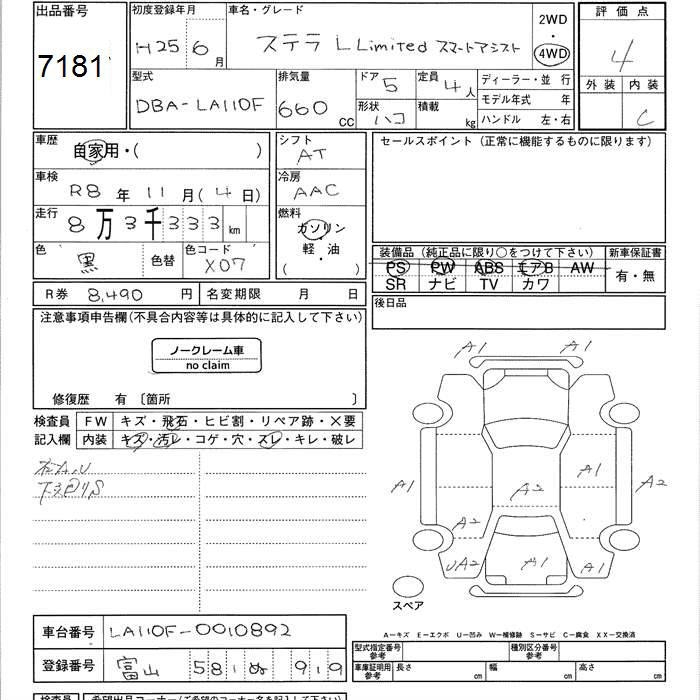 出品番号
7181
初度登録年月
H25 6月
車名・グレード
ステラ L Limited スマートアシスト
2WD
・
4WD
評価点
4
外装 内装
C
型式
DBA-LA110F
排気量
660 CC
ドア
5
形状
ハコ
定員
4人
積載
kg
ディーラー・並 行
モデル年式 年
ハンドル 左・右
車歴
自家用・( )
車検
R8 年 11 月 (4日)
走行
8万3千333km
色
黒
色替
色コード
X07
シフト
AT
冷房
AAC
燃料
ガソリン
・
軽・油
( )
セールスポイント(正常に機能するものに限ります)
装備品(純正品に限り○をつけて下さい)
PS PW ABS エアB AW
SR ナビ TV カワ
新車保証書
有・無
R券 8,490 円
名変期限 月 日
後日品
注意事項申告欄(不具合内容等は具体的に記入して下さい)
ノークレーム車
no claim
修復歴 有 〔箇所 〕
検査員
記入欄
FW キズ・飛石・ヒビ割・リペア跡・×要
内装 キズ・汚レ・コゲ・穴・スレ・キレ・破レ
A1 A1
A1 A2 A1 A2
A2
UA2 A1 A1
スペア
A-キズ E-エクボ U-凹み W-補修跡 S-サビ C-腐食 XX-交換済
車台番号
LA110F-0010892
登録番号
富山 581 ぬ 919
型式指定番号
参考
種別区分番号
参考
車庫証明用
参考
長さ cm 幅 cm 高さ cm
検査員